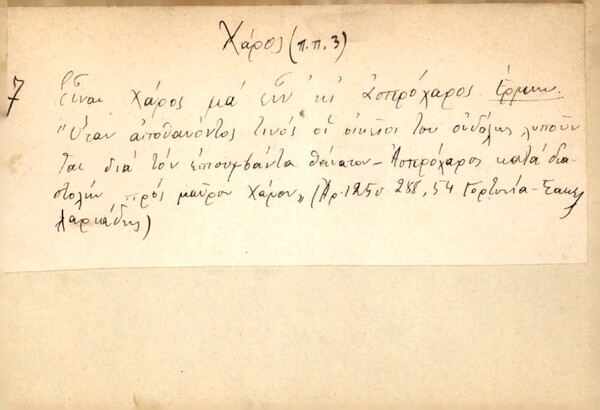 Χάρος (π.π. 3)
7 Εἶναι Χάρος μά εἶν κι ἀσπρόχαρος. Ἑρμην.
"Ὅταν ἀποθανόντος τινός οἱ οἰκεῖοι του οὐδόλως λυποῦν
ται διά τόν ἐπισυμβάντα θάνατον - Ἀσπρόχαρος κατά δια
στολήν πρός μαῦρον Χάρον" (Ἀρ. 1250 288, 54 Γορτυνία -
Λαρκάδης)